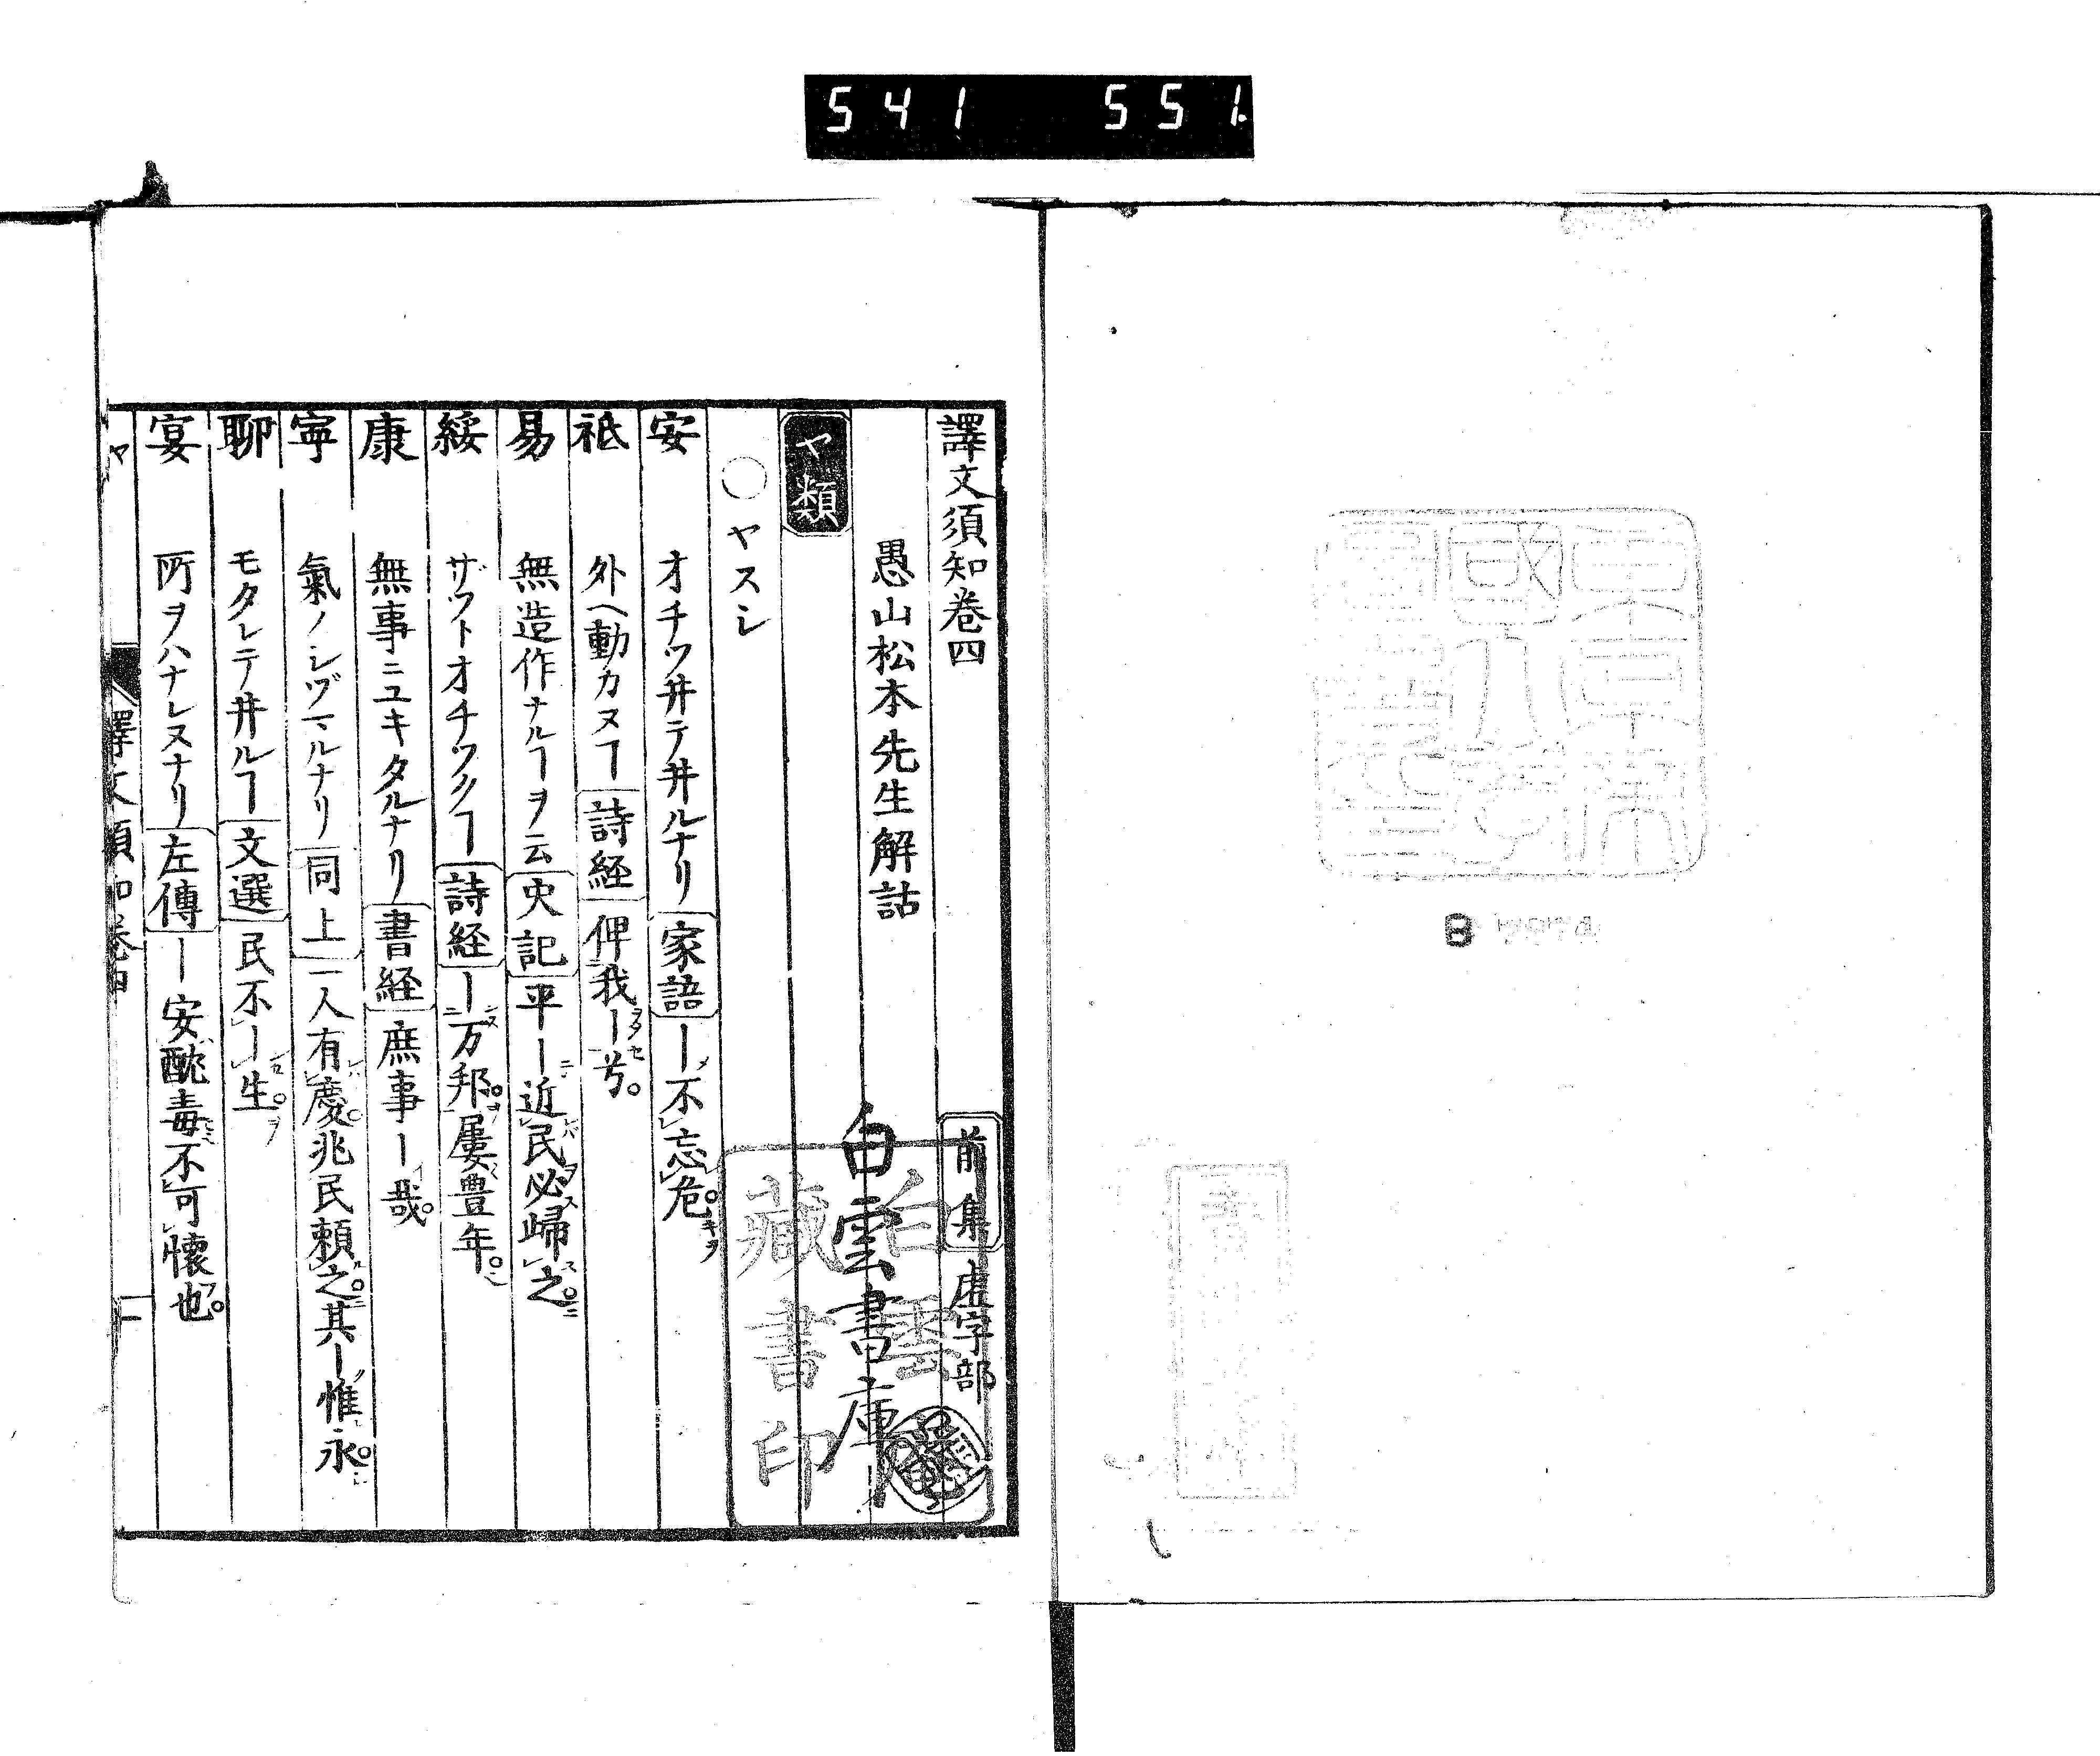 541 551
譯文須知卷四
前集 虚字部
愚山松本先生解詁
白雲書庫
白雲
藏書印
ヤ類
○ヤスシ
安 オチツ井テ井ルナリ 家語 ー不忘危
祗 外ヘ動カヌヿ 詩経 俾我ー兮
易 無造作ナルヿヲ云 史記 平ー近民必歸之
綏 ザツトオチツクヿ 詩経 ー万邦屢豊年
康 無事ニユキタルナリ 書経 庶事ー哉
寧 氣ノシヅマルナリ 同上 一人有慶兆民頼之其ー惟永
聊 モタレテ井ルヿ 文選 民不ー生
宴 所ヲハナレヌナリ 左傳 ー安酖毒不可懐也
ヤ 譯文須知卷四 一